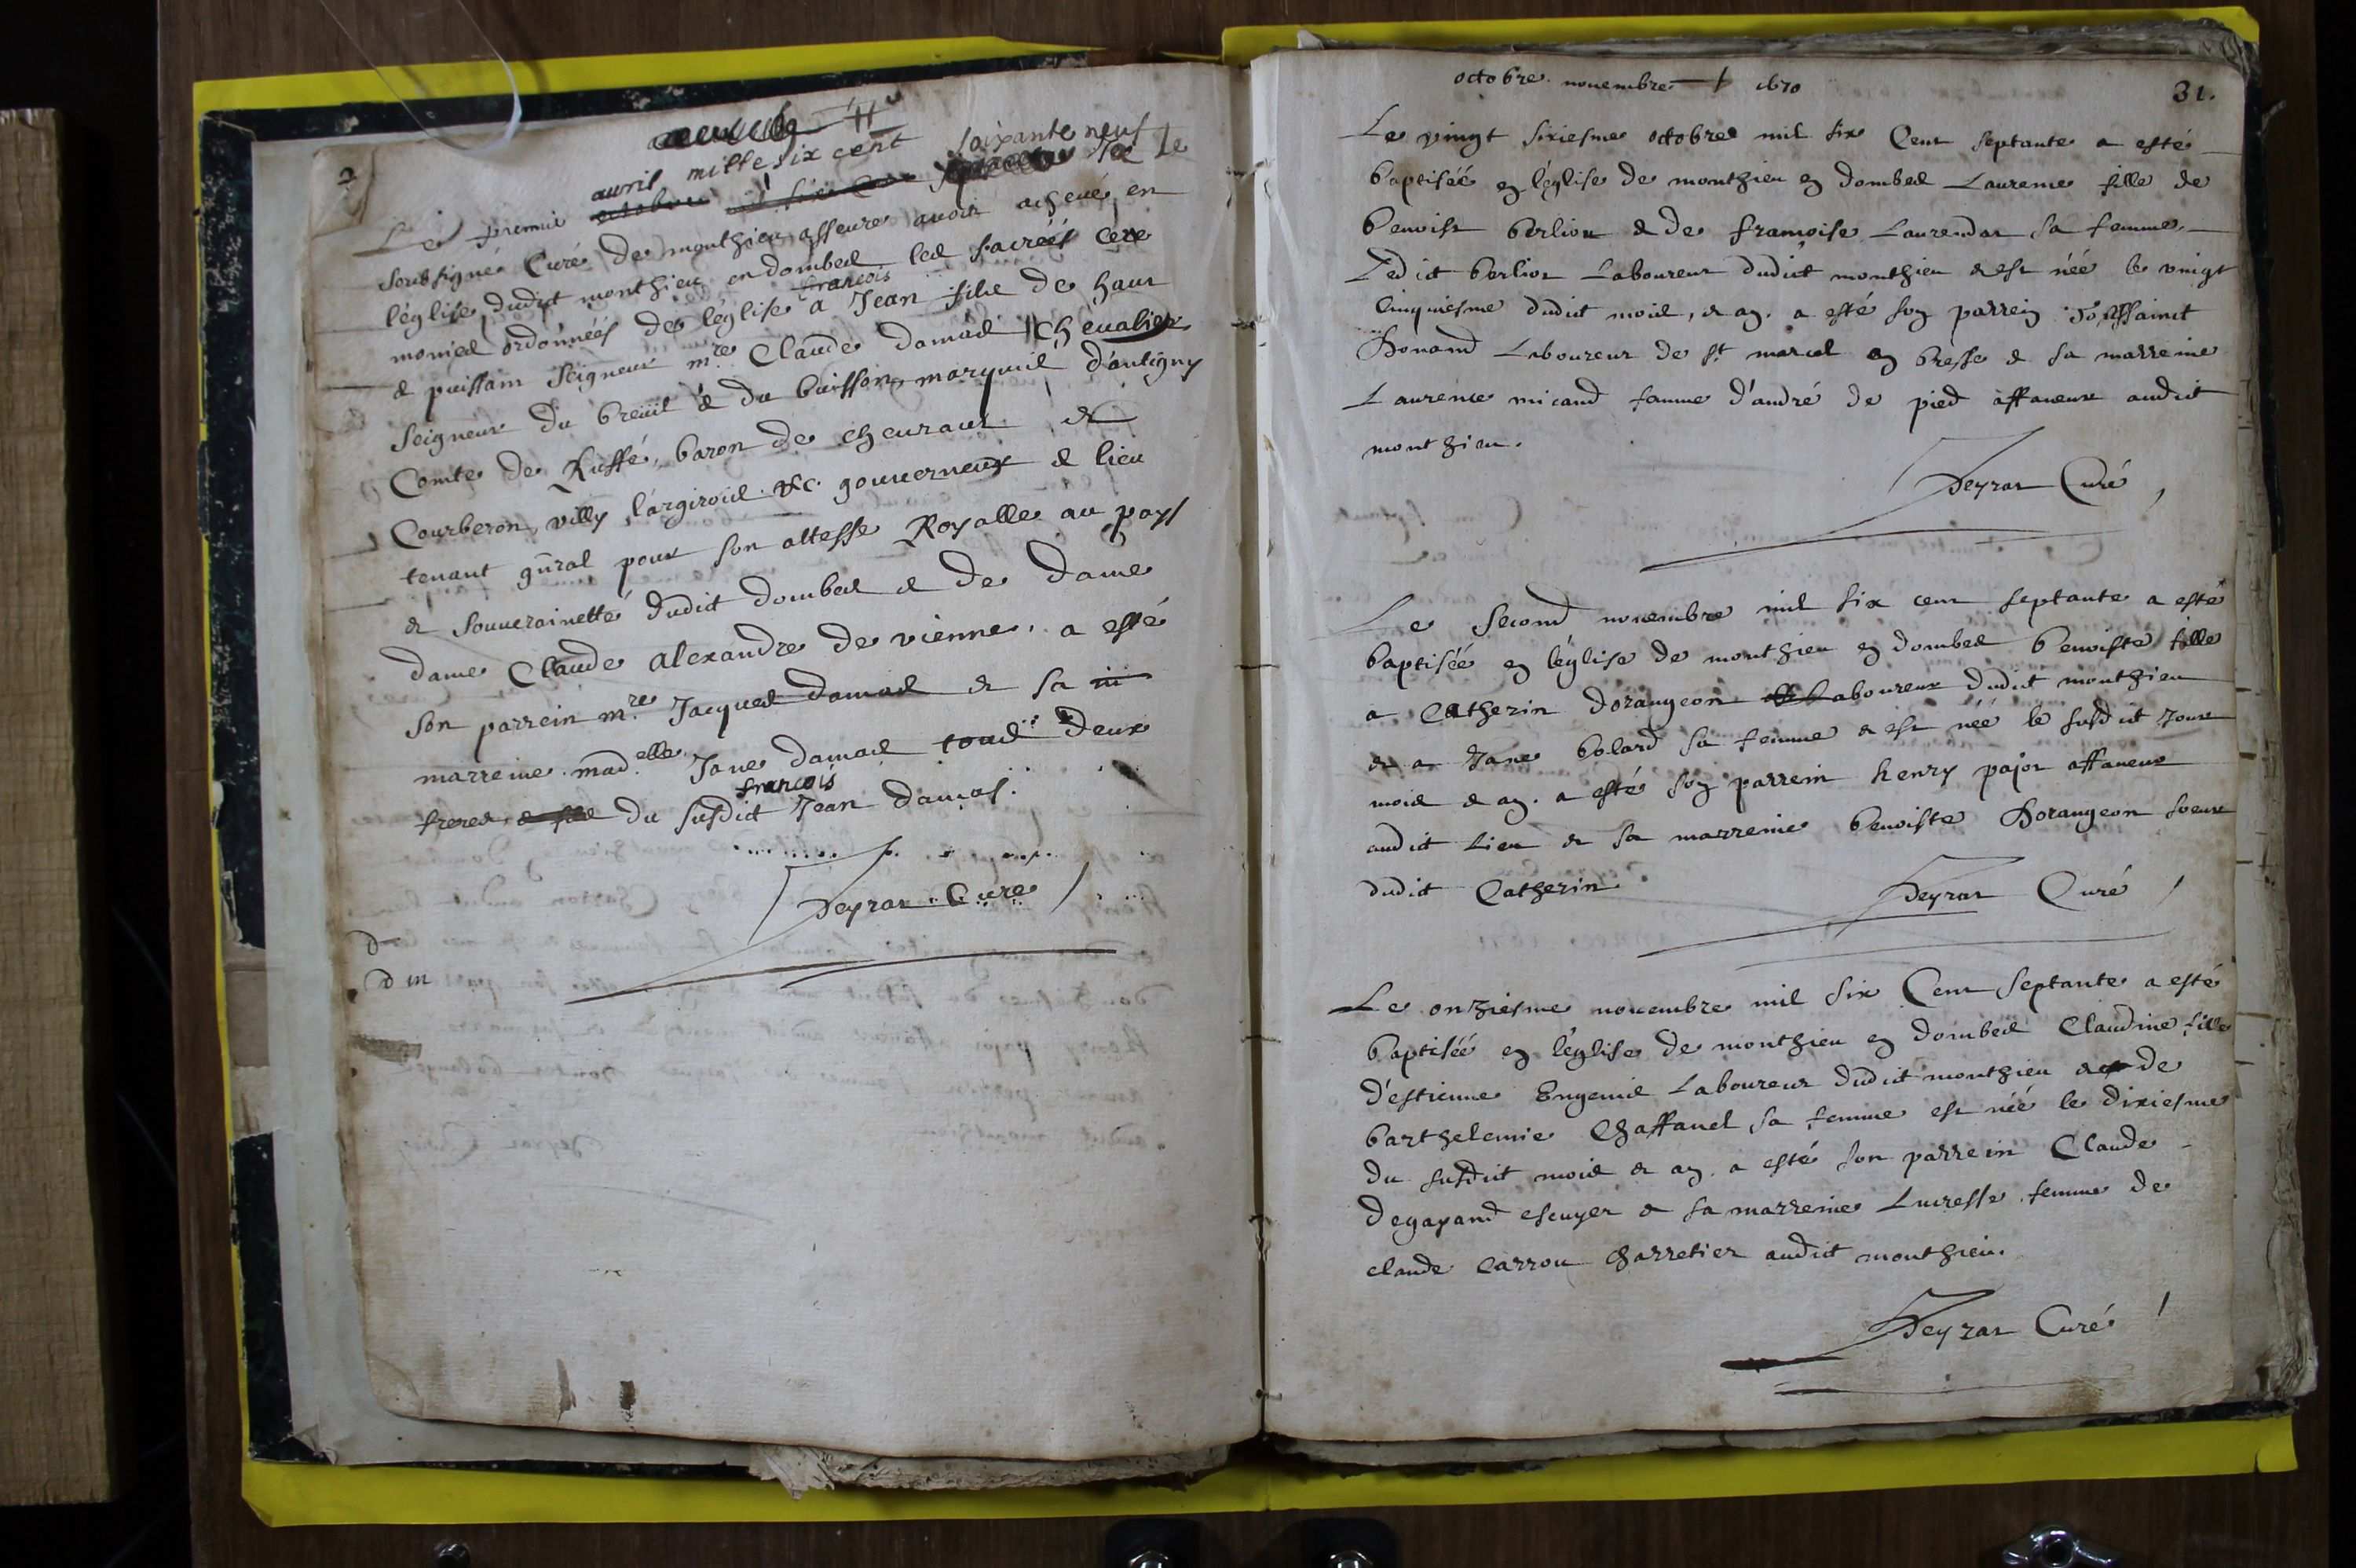 2
avril mille six cent soixante neuf
Le premier octobre mil six Cent Je Le
soubsigné Curé de monthieu asseure avoir achevé en
léglise dudict monthieu en dombes les sacréés cere
françois
monies ordonnéés de léglise a Jean filz de haut
& puissant Seigneur mre Claude damas chevalier
Seigneur du breüil & du buisson, marquis d'antigny
Comte de Ruffé, baron de chevraut &
Courberon, villy, largirois &c. gouverneur & lieu
tenant gñral pour son altesse Royalle au pays
& souverainetté dudict dombes & de dame
dame Claude alexandre de vienne, a esté
son parrein mre Jacques damas & sa m
marreine madelle Jane damas tous deux
françois
freres & du susdict Jean damas.
Deyrat Curé
D
D m
octobre novembre 1670
31.
Le vingt sixiesme octobre mil six Cent septante a esté
baptiséé en léglise de monthieu en dombes Laurence fille de
benoist berliot & de françoise Laurendat sa femme
Ledict berliot Laboureur dudict monthieu & est néé le vingt
Cinquiesme dudict mois, & an. a esté son parrein Toussainct
Donand Laboureur de st marcel en bresse & sa marreine
Laurence micand famme d'andré de pied affaneur audict
monthieu.
Deyrat Curé
Le second novembre mil six cent septante a esté
baptiséé en léglise de monthieu en dombes benoiste fille
a Catherin dorangeon Laboureur dudict monthieu
& a Jane bolard sa femme & est néé le susdict Jour
mois & an. a esté son parrein henry pajot affaneur
audict lieu & sa marreine benoiste Dorangeon soeur
dudict Catherin
Deyrat Curé
Le onziesme novembre mil six Cent septante a esté
baptiséé en léglise de monthieu en dombes Claudine fille
d'estienne Engenié Laboureur dudict monthieu & de
barthelemie Chaffanel sa femme est néé le dixiesme
du susdict mois & an. a esté son parrein Claude
degapand escuyer & sa marreine Lucresse femme de
claude Carrou charretier audict monthieu.
Deyrat Curé